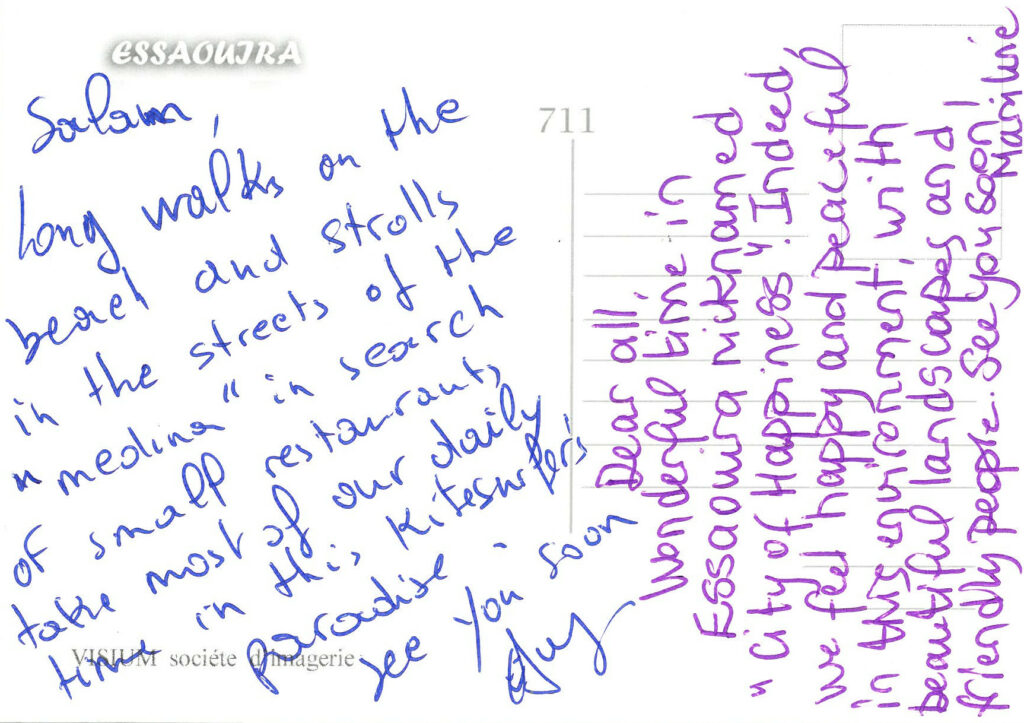 ESSAOUIRA
Salam,
Long walks on the
beach and strolls
in the streets of the
"medina" in search
of small restaurants
take most of our daily
time in this kitesurfer's
paradise -
see you soon
Guy
VISIUM sociéte d'imagerie
711
Dear all,
Wonderful time in
Essaouira nicknamed
"City of Happiness". Indeed,
we feel happy and peaceful
in this environment, with
beautiful landscapes and
friendly people. See you soon!
Marilurie